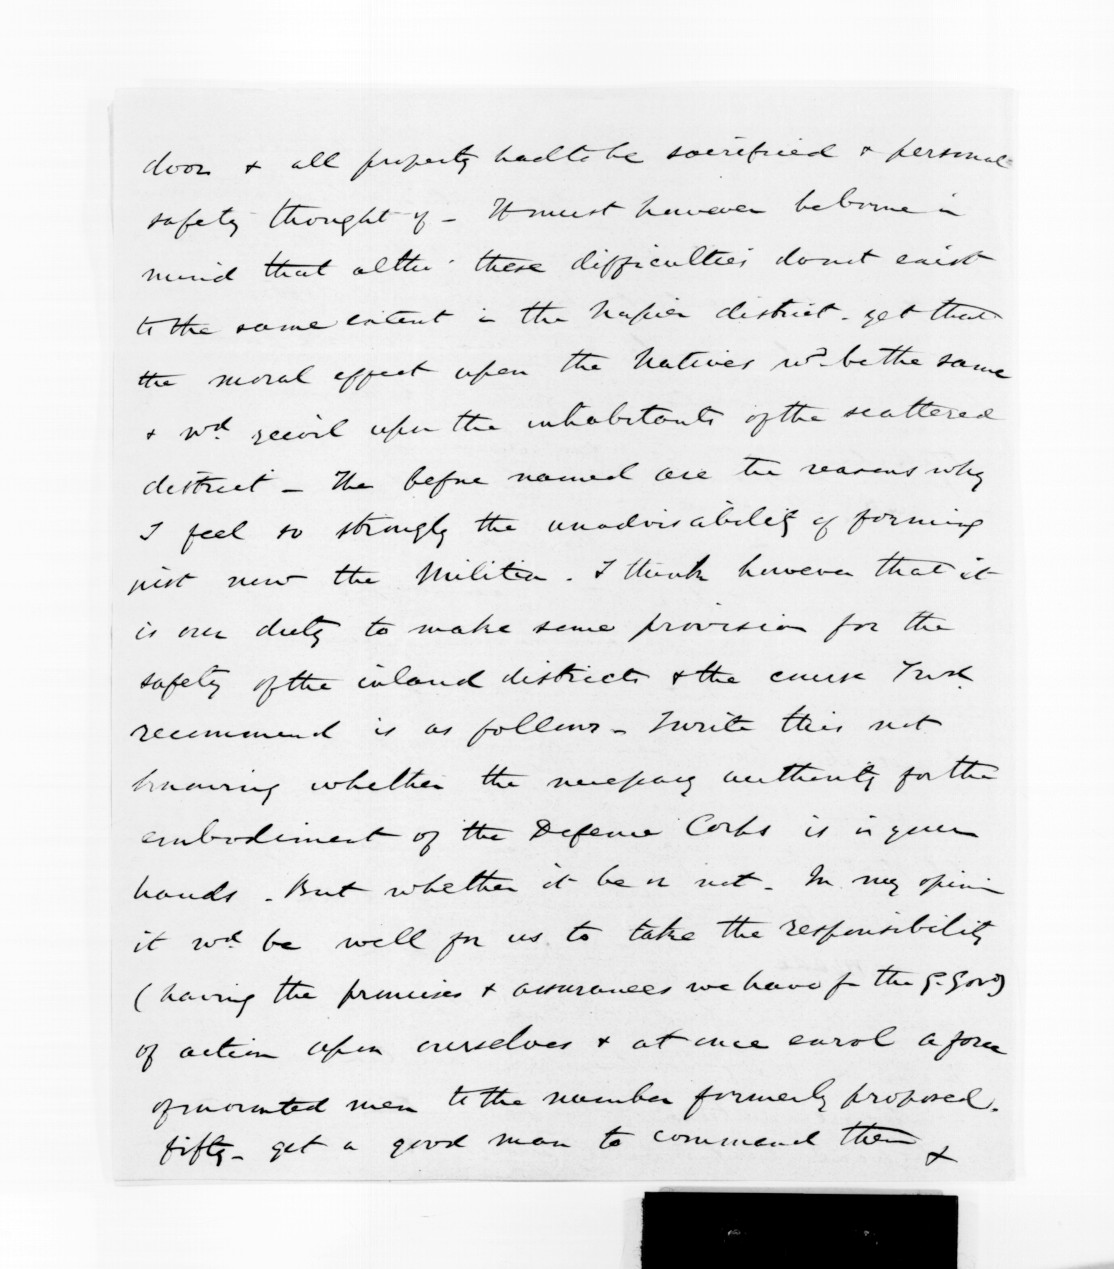 door & all property had to be sacrificed & personal
safety thought of - It must however be borne in
mind that altho' these difficulties do not exist
to the same extent in the Napier district - yet that
the moral effect upon the Natives wd. be the same
& wd. recoil upon the inhabitants of the scattered
district - The before named are the reasons why
I feel so strongly the unadvisability of forming
just now the Militia. I think however that it
is our duty to make some provision for the
safety of the inland districts & the course I wd.
recommend is as follows - I write this not
knowing whether the necessary authority for the
embodiment of the Defence Corps is in your
hands. But whether it be or not - In my opinion
it wd. be well for us to take the responsibility
(having the promises & assurances we have fm the G. Govt)
of action upon ourselves & at once enrol a force
of mounted men to the number formerly proposed.
fifty - get a good man to command them &